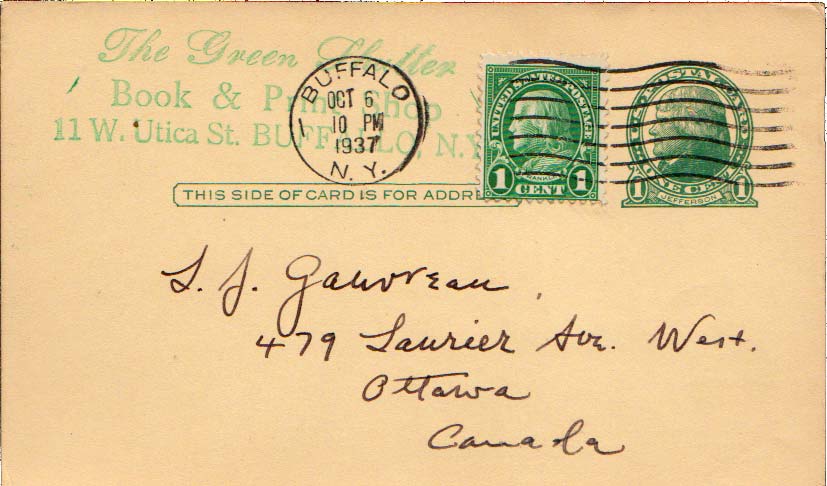 The Green Shutter
Book & Print Shop
11 W. Utica St. BUFFALO, N.Y.
BUFFALO
OCT 6
10 PM
1937
N. Y.
UNITED STATES POSTAGE
FRANKLIN
1 CENT 1
U.S. POSTAL CARD
1 ONE CENT 1
JEFFERSON
THIS SIDE OF CARD IS FOR ADDRE
L. J. Gauvreau
479 Laurier Ave. West.
Ottawa
Canada